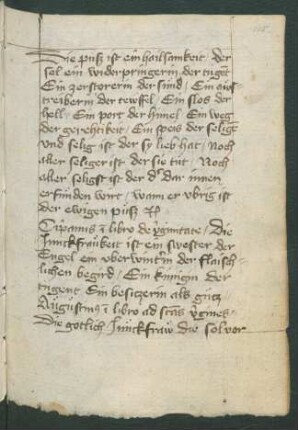 Die puß ist ein hailsamkeit der
sel ein widerpringerin der tuget
Ein zerstorerin der sind / Ein auß
treiberin der tewffel / Ein slos der
hell / Ein port der himel Ein weg
der gerehtikeit / Ein speis der selige
vnd selig ist der sy lieb hat / Noch
aber seliger ist der sie tut / Noch
aber seligst ist der dar innen
erfunden wirt / wann er vbrig ist
der ewigen puß
Cipanus i libro de virginitate / Die
Junckfraukeit ist ein swester der
Engel ein vberwinterin der flaisch
lichen begird / Ein kunigin der
tugent Ein besitzerin als gutz /
Augustinus i libro ad sctas virgines
Die gotlich Junckfraw die sol vor